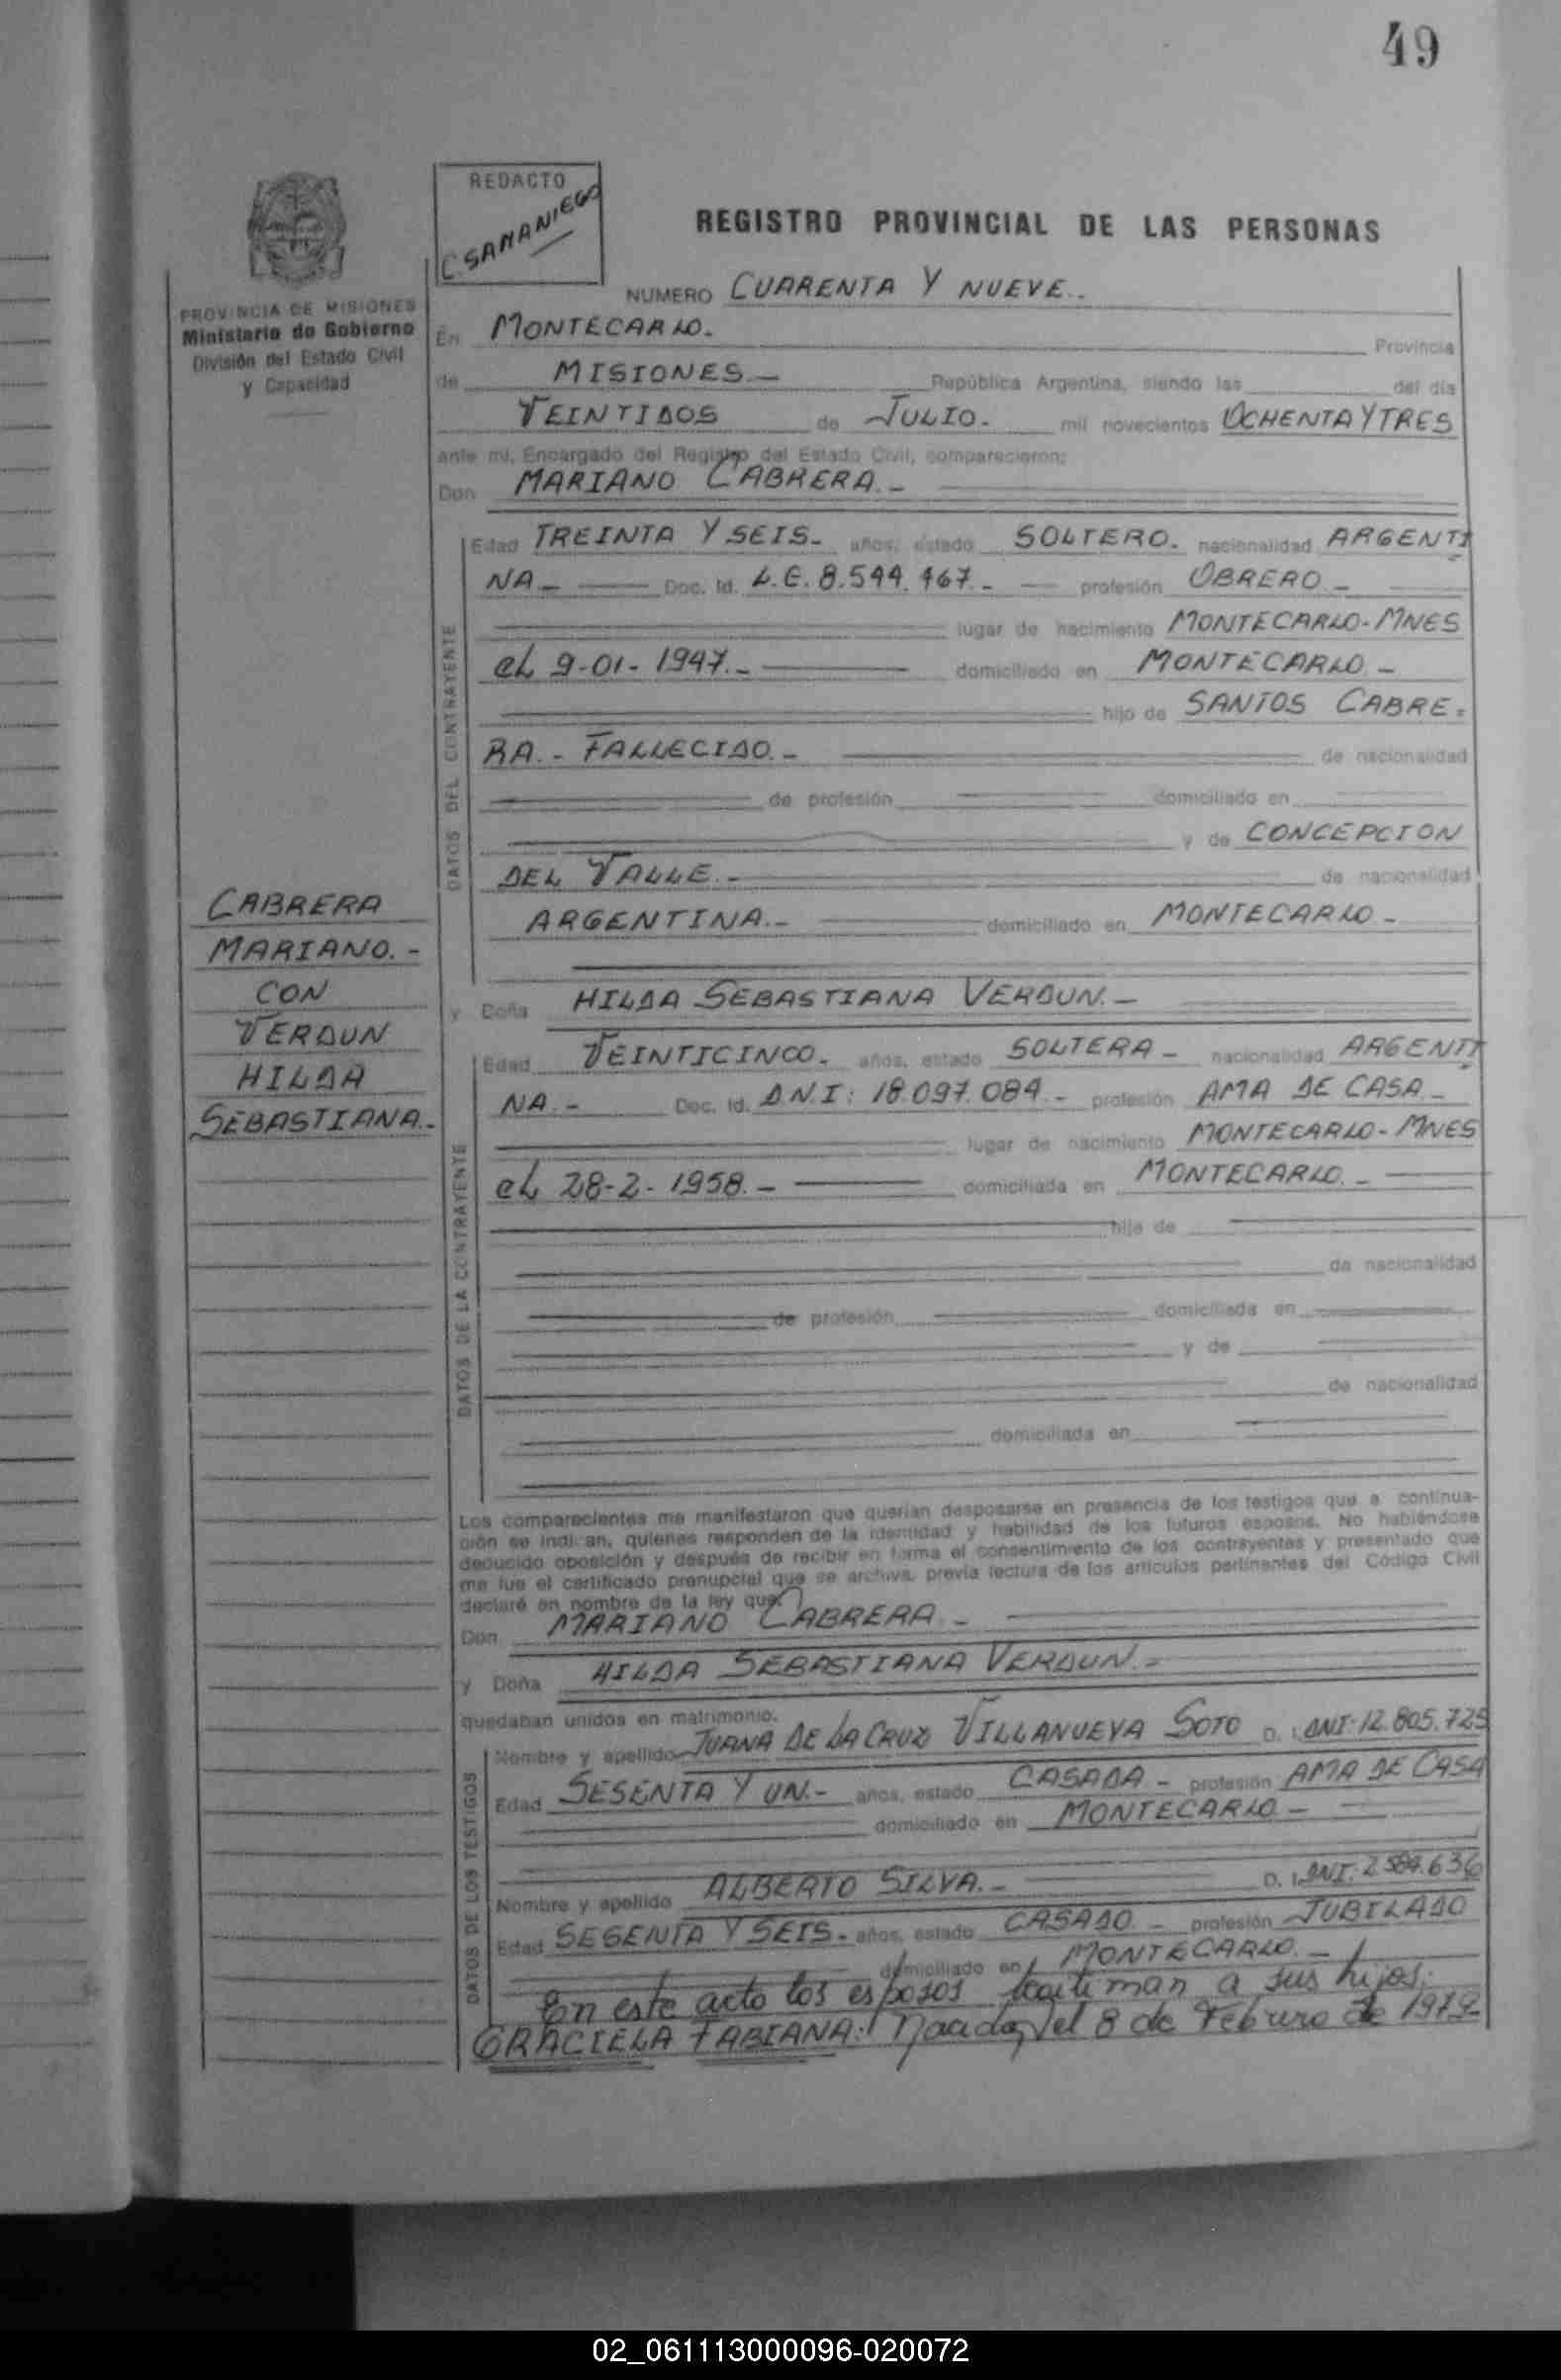 49
REDACTO
C. SAMANIEGO
REGISTRO PROVINCIAL DE LAS PERSONAS
PROVINCIA DE MISIONES
Ministerio de Gobierno
División del Estado Civil
y Capacidad
NUMERO CUARENTA Y NUEVE.-
En MONTECARLO.
Provincia
de MISIONES.- República Argentina, siendo las del día
VEINTIDOS de JULIO.- mil novecientos OCHENTA Y TRES
ante mí, Encargado del Registro del Estado Civil, comparecieron:
Don MARIANO CABRERA.-
DATOS DEL CONTRAYENTE
Edad TREINTA Y SEIS.- años, estado SOLTERO.- nacionalidad ARGENTI
NA.- Doc. Id. L.E. 8.544.467.- profesión OBRERO.-
lugar de nacimiento MONTECARLO-MNES
el 9-01-1947.- domiciliado en MONTECARLO.-
hijo de SANTOS CABRE=
RA.- FALLECIDO.- de nacionalidad
de profesión domiciliado en
y de CONCEPCION
DEL VALLE.- de nacionalidad
ARGENTINA.- domiciliado en MONTECARLO.-
CABRERA
MARIANO.-
CON
VERDUN
HILDA
SEBASTIANA.-
y Doña HILDA SEBASTIANA VERDUN.-
DATOS DE LA CONTRAYENTE
Edad VEINTICINCO.- años, estado SOLTERA.- nacionalidad ARGENTI
NA.- Doc. Id. DN.I: 18.097.084.- profesión AMA DE CASA.-
lugar de nacimiento MONTECARLO-MNES
el 28-2-1958.- domiciliada en MONTECARLO.-
hija de
de nacionalidad
de profesión domiciliada en
y de
de nacionalidad
domiciliada en
Los comparecientes me manifestaron que querían desposarse en presencia de los testigos que a continua-
ción se indican, quienes responden de la identidad y habilidad de los futuros esposos. No habiéndose
deducido oposición y después de recibir en forma el consentimiento de los contrayentes y presentado que
me fue el certificado prenupcial que se archiva, previa lectura de los artículos pertinentes del Código Civil
declaré en nombre de la ley que:
Don MARIANO CABRERA.-
y Doña HILDA SEBASTIANA VERDUN.=
quedaban unidos en matrimonio.
DATOS DE LOS TESTIGOS
Nombre y apellido JUANA DE LA CRUZ VILLANUEVA SOTO D. I. DNI: 12.805.725
Edad SESENTA Y UN.- años, estado CASADA.- profesión AMA DE CASA
domiciliado en MONTECARLO.-
Nombre y apellido ALBERTO SILVA.- D. I. DNI: 2.584.636
Edad SESENTA Y SEIS.- años, estado CASADO.- profesión JUBILADO
domiciliado en MONTECARLO.-
En este acto los esposos legitiman a sus hijos:
GRACIELA FABIANA: Nacida el 8 de Febrero de 1979
02_061113000096-020072